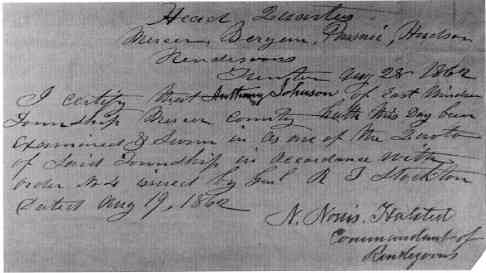 Head Quarters
Mercer, Bergen, Passaic, Hudson
Rendezvous
Trenton Aug 28 1862
I certify that Anthony Johnson of East Windsor
Township Mercer County hath this day been
examined & sworn in as one of the Quota
of Said Township in accordance with
order No 4 issued by Genl R F Stockton
dated Aug 19, 1862
N. Norris Halsted
Commandant of
Rendezvous